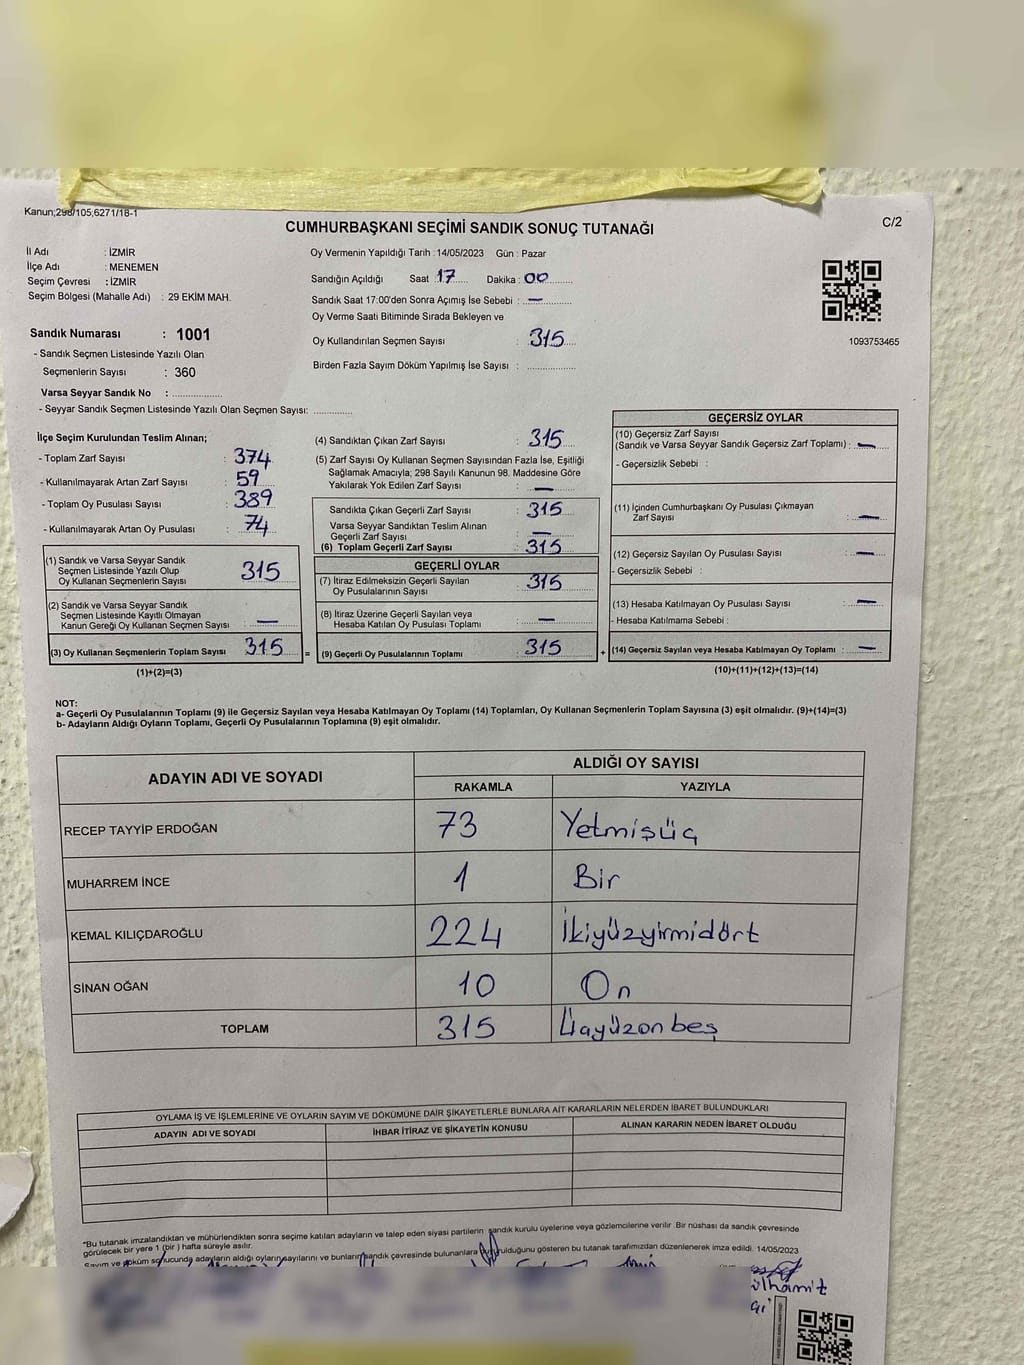 Kanun;298/105,6271/18-1
C/2
CUMHURBAŞKANI SEÇİMİ SANDIK SONUÇ TUTANAĞI
İl Adı : İZMİR
İlçe Adı : MENEMEN
Seçim Çevresi : İZMİR
Seçim Bölgesi (Mahalle Adı) : 29 EKİM MAH.
Oy Vermenin Yapıldığı Tarih : 14/05/2023 Gün : Pazar
Sandığın Açıldığı Saat 17 Dakika : 00
Sandık Saat 17:00'den Sonra Açımış İse Sebebi : —
Oy Verme Saati Bitiminde Sırada Bekleyen ve
Oy Kullandırılan Seçmen Sayısı : 315
Birden Fazla Sayım Döküm Yapılmış İse Sayısı :
1093753465
Sandık Numarası : 1001
- Sandık Seçmen Listesinde Yazılı Olan
Seçmenlerin Sayısı : 360
Varsa Seyyar Sandık No :
- Seyyar Sandık Seçmen Listesinde Yazılı Olan Seçmen Sayısı:
İlçe Seçim Kurulundan Teslim Alınan;
- Toplam Zarf Sayısı : 374
- Kullanılmayarak Artan Zarf Sayısı : 59
- Toplam Oy Pusulası Sayısı : 389
- Kullanılmayarak Artan Oy Pusulası : 74
(1) Sandık ve Varsa Seyyar Sandık
Seçmen Listesinde Yazılı Olup
Oy Kullanan Seçmenlerin Sayısı : 315
(2) Sandık ve Varsa Seyyar Sandık
Seçmen Listesinde Kayıtlı Olmayan
Kanun Gereği Oy Kullanan Seçmen Sayısı : —
(3) Oy Kullanan Seçmenlerin Toplam Sayısı : 315
(1)+(2)=(3)
(4) Sandıktan Çıkan Zarf Sayısı : 315
(5) Zarf Sayısı Oy Kullanan Seçmen Sayısından Fazla İse, Eşitliği
Sağlamak Amacıyla; 298 Sayılı Kanunun 98. Maddesine Göre
Yakılarak Yok Edilen Zarf Sayısı : —
Sandıkta Çıkan Geçerli Zarf Sayısı : 315
Varsa Seyyar Sandıktan Teslim Alınan
Geçerli Zarf Sayısı : —
(6) Toplam Geçerli Zarf Sayısı : 315
GEÇERLİ OYLAR
(7) İtiraz Edilmeksizin Geçerli Sayılan
Oy Pusulalarının Sayısı : 315
(8) İtiraz Üzerine Geçerli Sayılan veya
Hesaba Katılan Oy Pusulası Toplamı : —
= (9) Geçerli Oy Pusulalarının Toplamı : 315
GEÇERSİZ OYLAR
(10) Geçersiz Zarf Sayısı
(Sandık ve Varsa Seyyar Sandık Geçersiz Zarf Toplamı) : —
- Geçersizlik Sebebi :
(11) İçinden Cumhurbaşkanı Oy Pusulası Çıkmayan
Zarf Sayısı : —
(12) Geçersiz Sayılan Oy Pusulası Sayısı : —
- Geçersizlik Sebebi :
(13) Hesaba Katılmayan Oy Pusulası Sayısı : —
- Hesaba Katılmama Sebebi :
+ (14) Geçersiz Sayılan veya Hesaba Katılmayan Oy Toplamı : —
(10)+(11)+(12)+(13)=(14)
NOT:
a- Geçerli Oy Pusulalarının Toplamı (9) ile Geçersiz Sayılan veya Hesaba Katılmayan Oy Toplamı (14) Toplamları, Oy Kullanan Seçmenlerin Toplam Sayısına (3) eşit olmalıdır. (9)+(14)=(3)
b- Adayların Aldığı Oyların Toplamı, Geçerli Oy Pusulalarının Toplamına (9) eşit olmalıdır.
ADAYIN ADI VE SOYADI ALDIĞI OY SAYISI
RAKAMLA YAZIYLA
RECEP TAYYİP ERDOĞAN 73 Yetmişüç
MUHARREM İNCE 1 Bir
KEMAL KILIÇDAROĞLU 224 İkiyüzyirmidört
SİNAN OĞAN 10 On
TOPLAM 315 Üçyüzonbeş
OYLAMA İŞ VE İŞLEMLERİNE VE OYLARIN SAYIM VE DÖKÜMÜNE DAİR ŞİKAYETLERLE BUNLARA AİT KARARLARIN NELERDEN İBARET BULUNDUKLARI
ADAYIN ADI VE SOYADI İHBAR İTİRAZ VE ŞİKAYETİN KONUSU ALINAN KARARIN NEDEN İBARET OLDUĞU
*Bu tutanak imzalandıktan ve mühürlendikten sonra seçime katılan adayların ve talep eden siyasi partilerin sandık kurulu üyelerine veya gözlemcilerine verilir .Bir nüshası da sandık çevresinde
görülecek bir yere 1 (bir ) hafta süreyle asılır.
Sayım ve döküm sonucunda adayların aldığı oyların sayılarını ve bunların sandık çevresinde bulunanlara duyurulduğunu gösteren bu tutanak tarafımızdan düzenlenerek imza edildi. 14/05/2023